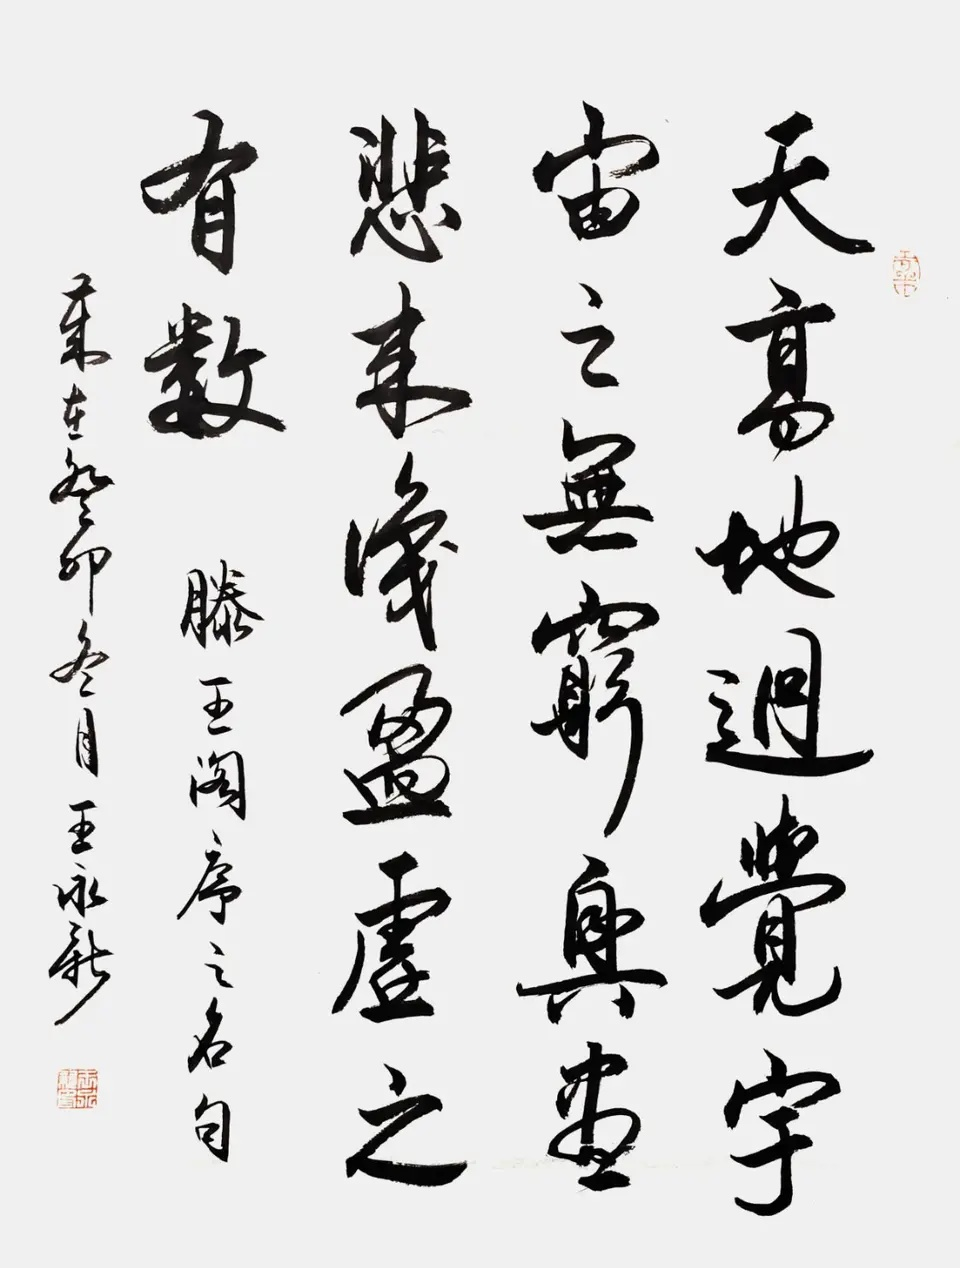 天高地迥覺宇
宙之無窮興盡
悲来識盈虚之
有数 滕王阁序之名句
歲在癸卯冬月王永新